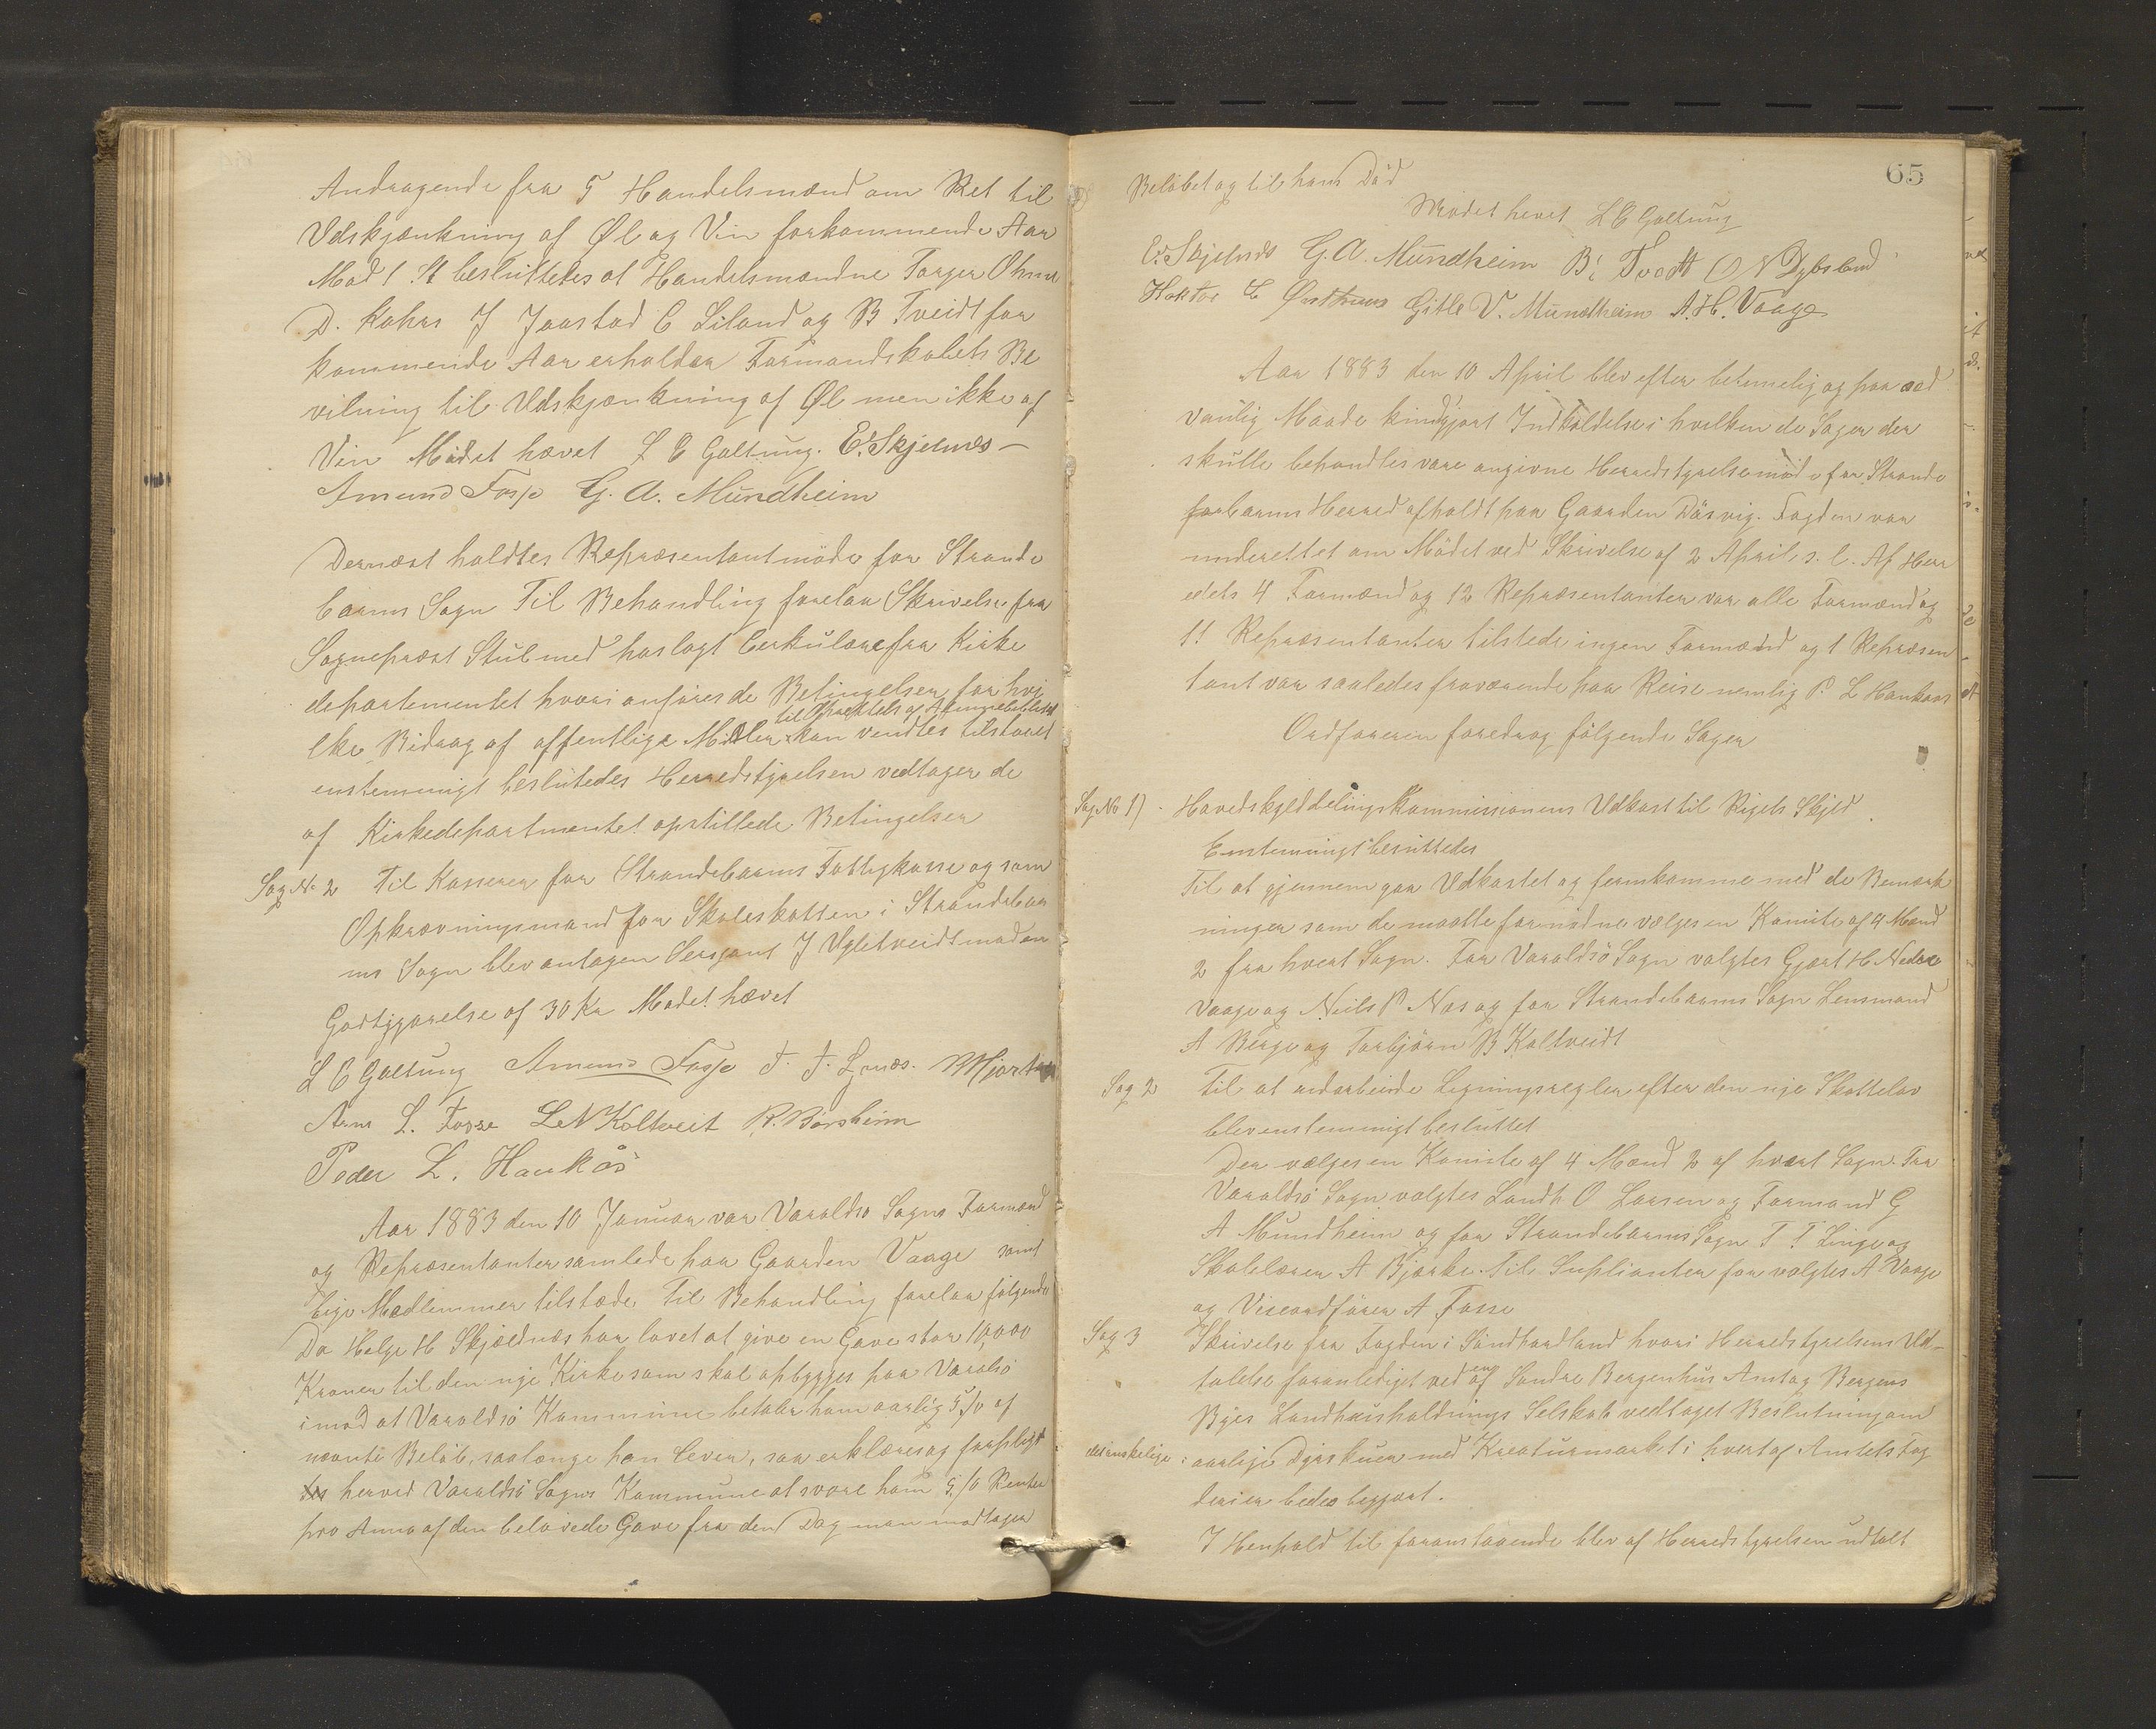 Andragende fra 5 Handelsmænd om Ret til
Udskjænkning af Øl og Vin forkommende Aar
Mod 1 St besluttedes at Handelsmændne Torger Ohma
D. Kahrs J Jaastad C Liland og B Tveidt for
kommende Aar erholder Formandskabets Be
vilning til Udskjænkning af Øl men ikke af
Vin Mødet hævet L C Galtung. E. Skjelnes –
Amund Fosse G. A. Mundheim
Dernæst holdtes Repræsentantmöde for Strande
barms Sogn Til Behandling forelaa Skrivelse fra
Sogneprest Stub med paslagt Cerkulære fra Kirke
departementet hvori anføres de Betingelser for hvi
til Oprettels af Almuebibliothek
lke Bidrag af offentlige Midler kan vendtes tilstaaet
enstemmigt beslutedes Herredstyrelsen vedtager de
af Kirkedepartmentet opstillede Betingelser
Sag No 2 Til Kasserer for Strandebarms Fattigkasse og som
Opkrævningsmand for Skoleskatten i Strandebar
ms Sogn blev antagen Sersjant J Ygletveidt mod en
Godtgjørelse af 30 Kr Mødet hævet
L C Galtung Amund Fosse T. T. Lynæs. M Hjort
Arne L. Fosse L N Koltveit R. Børsheim
Peder L. Haukås
Aar 1883 den 10 Januar var Varaldsø Sogns Formænd
og Repræsentanter samlede paa Gaarden Vaage samt
lige Medlemmer tilstæde Til Behandling forelaa følgende
Da Helge H Skjeldnæs har lovet at give en Gave stor 10,000
Kroner til den nye Kirke som skal opbygges paa Varalsö
imod at Varaldsö Kommune betaler ham aarlig 5 % af
nævnte Belöb, saalænge han lever, saa erklæres og forpligt
tes herved Varaldsö Sogns Kommune at svare ham 5 % Renter
pro Anno af den belovede Gave fra den Dag man modtager
65
Beløbet og til hans Död
Mødet hevet L C Galtung
E. Skjelnes G. A. Mundheim B. Tvedt O N Dybsland
Haktor E Gitle V. Mundheim A. H. Vaage
Aar 1883 den 10 April blev efter betimelig og paa sæd
vanlig Maade kundgjort Indkaldelse i hvilken de Sager der
skulle behandles vare angivne Herredstyrelsemöde for Strande
barms Herred afholdt paa Gaarden Däsvig. Fogden var
underettet om Mödet ved Skrivelse af 2 April s. l. Af Herr
edets 4 Formænd og 12 Repræsentanter var alle Formænd og
11 Repræsentanter tilstede ingen Formænd og 1 Repræsen
tant var saaledes fraværende paa Reise nemlig P. L Haukaas
Ordføreren foredrog fölgende Sager
Sag No 1) Hovedskylddelingskommissionens Udkast til Rigets Skyld
Enstemmigt besluttedes
Til at gjennemgaa Udkastet og fremkomme med de Bemærk
ninger som de maatte formödne vælges en Komite af 4 Mænd
2 fra hvert Sogn. For Varaldsö Sogn valgtes Gjert H Nedre
Vaage og Neils P Næs og for Strandebarms Sogn Lensmand
A Berge og Torbjørn B Koltveidt
Sag 2 Til at udarbeide Ligningsregler efter den nye Skattelov
blev enstemmigt besluttet
Der vælges en Komite af 4 Mænd 2 af hvert Sogn. For
Varaldsö Sogn valgtes Landh. O Larsen og Formand G
A Mundheim og for Strandebarms Sogn T T Linge og
Skolelærer A Bjørke. Til Suplianter for valgtes A Vaage
og Viseordfører A Fosse
Sag 3 Skrivelse fra Fogden i Söndhordland hvori Herredstyrelsens Ud-
talelse foranlediget ved en af Søndre Bergenhus Amt og Bergens
Byes Landhusholdnings Selskab vedtaget Beslutning om
det ønskelige i aarlige Dyrskuer med Kreaturmarket i hvert af Amtets Fog
derier bedes begjært.
I Henhold til foranstaaende blev af Herredstyrelsen udtalt